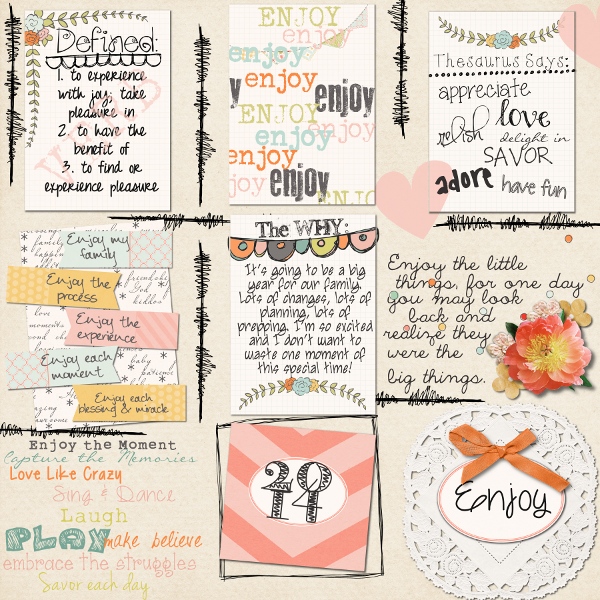 Defined:
VERB
1. to experience
with joy; take
pleasure in
2. to have the
benefit of
3. to find or
experience pleasure
ENJOY
enjoy
enjoy
enjoy
ENJOY
enjoy
enjoy
ENJOY
enjoy
Thesaurus Says:
appreciate
relish
love
delight in
SAVOR
adore
have fun
Enjoy my
family
Enjoy the
process
Enjoy the
experience
Enjoy each
moment
Enjoy each
blessing & miracle
The WHY:
It's going to be a big
year for our family.
Lots of changes, lots of
planning, lots of
prepping. I'm so excited
and I don't want to
waste one moment of
this special time!
Enjoy the little
things, for one day
you may look
back and
realize they
were the
big things.
Enjoy the Moment
Capture the Memories
Love Like Crazy
Sing & Dance
Laugh
PLAY
make believe
embrace the struggles
Savor each day
2014
Enjoy